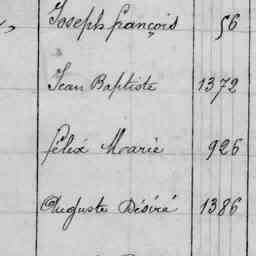 Joseph françois 56
Jean Baptiste 1372
félix Marie 926
Auguste Désiré 1386